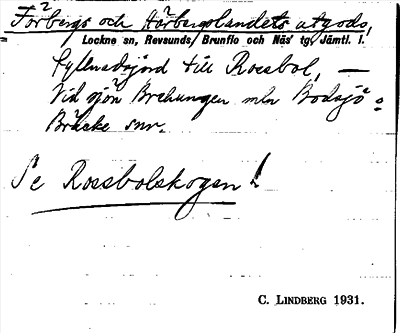 Forbergs och Hårbergslandets utgods,
Lockne sn, Revsunds, Brunflo och Näs' tg, Jämtl. l.
Fyllnadsjord till Rossbol, —
Vid sjön Brehungen mln Bodsjö o
Bräcke snr.
Se Rossbolskogen!
C. LINDBERG 1931.